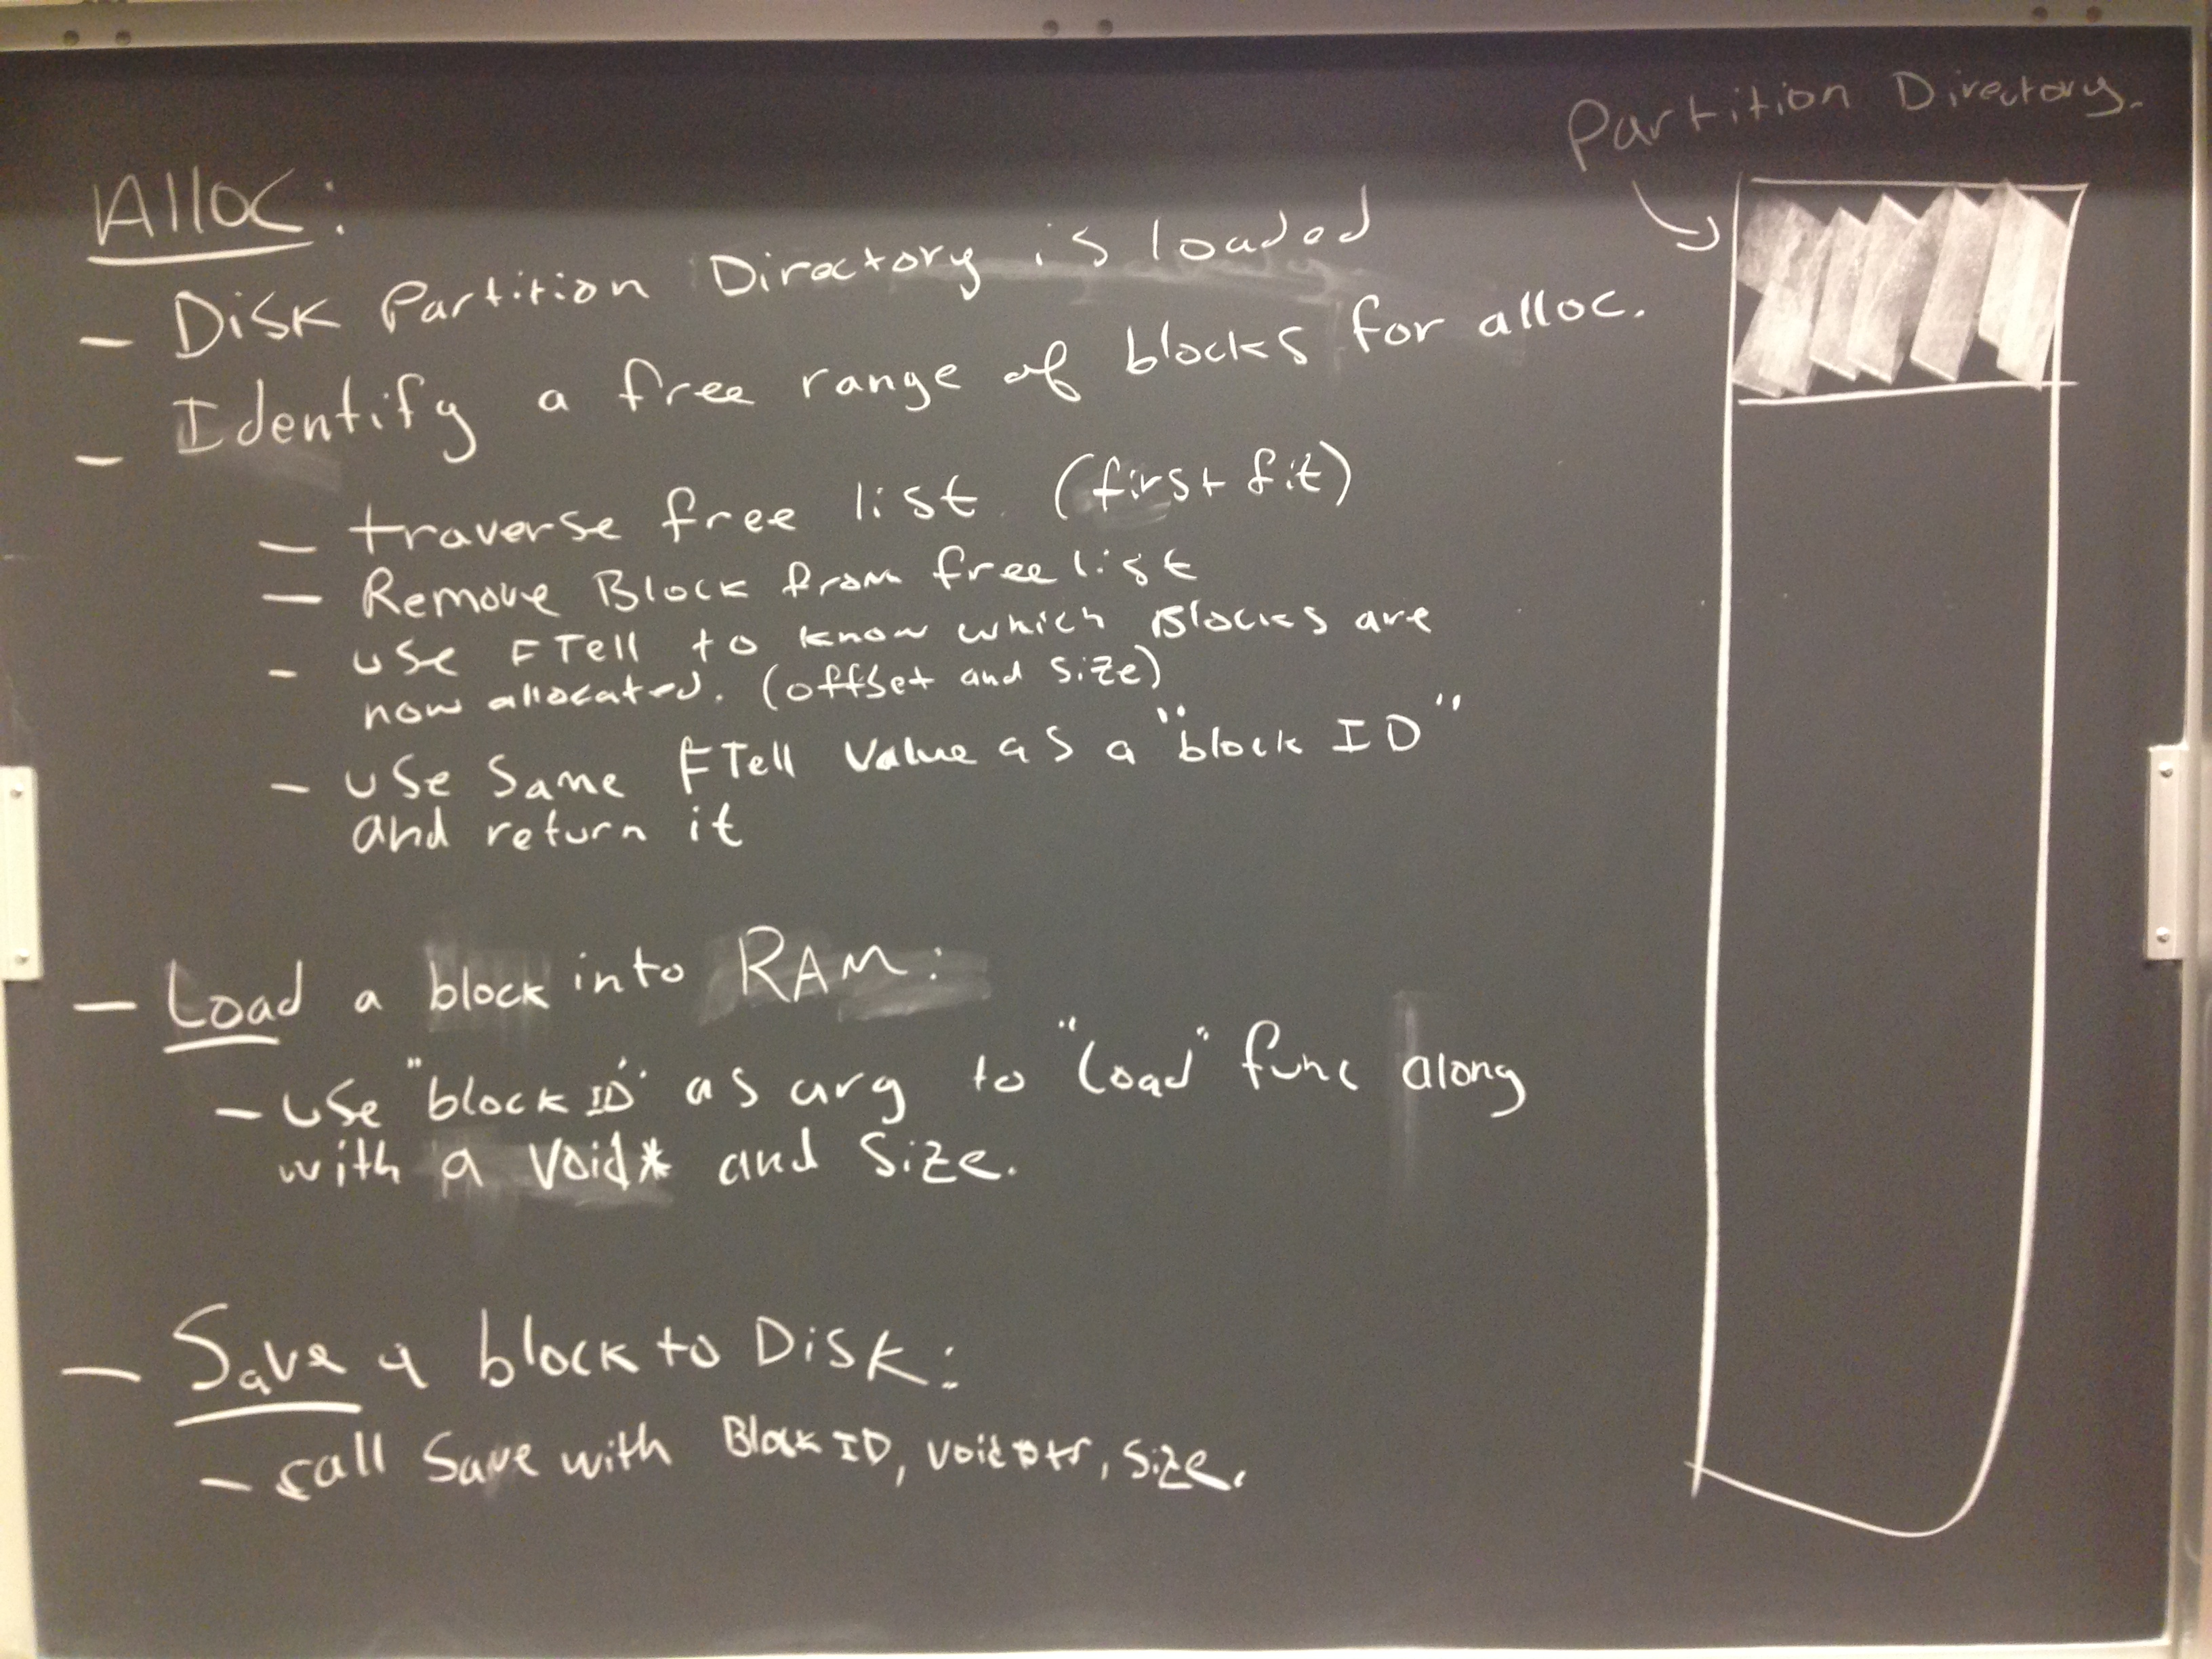 Partition Directory.
Alloc:
- Disk Partition Directory is loaded
- Identify a free range of blocks for alloc.
- traverse free list. (first fit)
- Remove Block from free list
- use FTell to know which Blocks are
now allocated. (offset and size)
- use same FTell value as a "block ID"
and return it
- Load a block into RAM:
- use "block ID" as arg to "load" func along
with a void* and size.
- Save a block to Disk:
- call save with Block ID, void ptr, size.